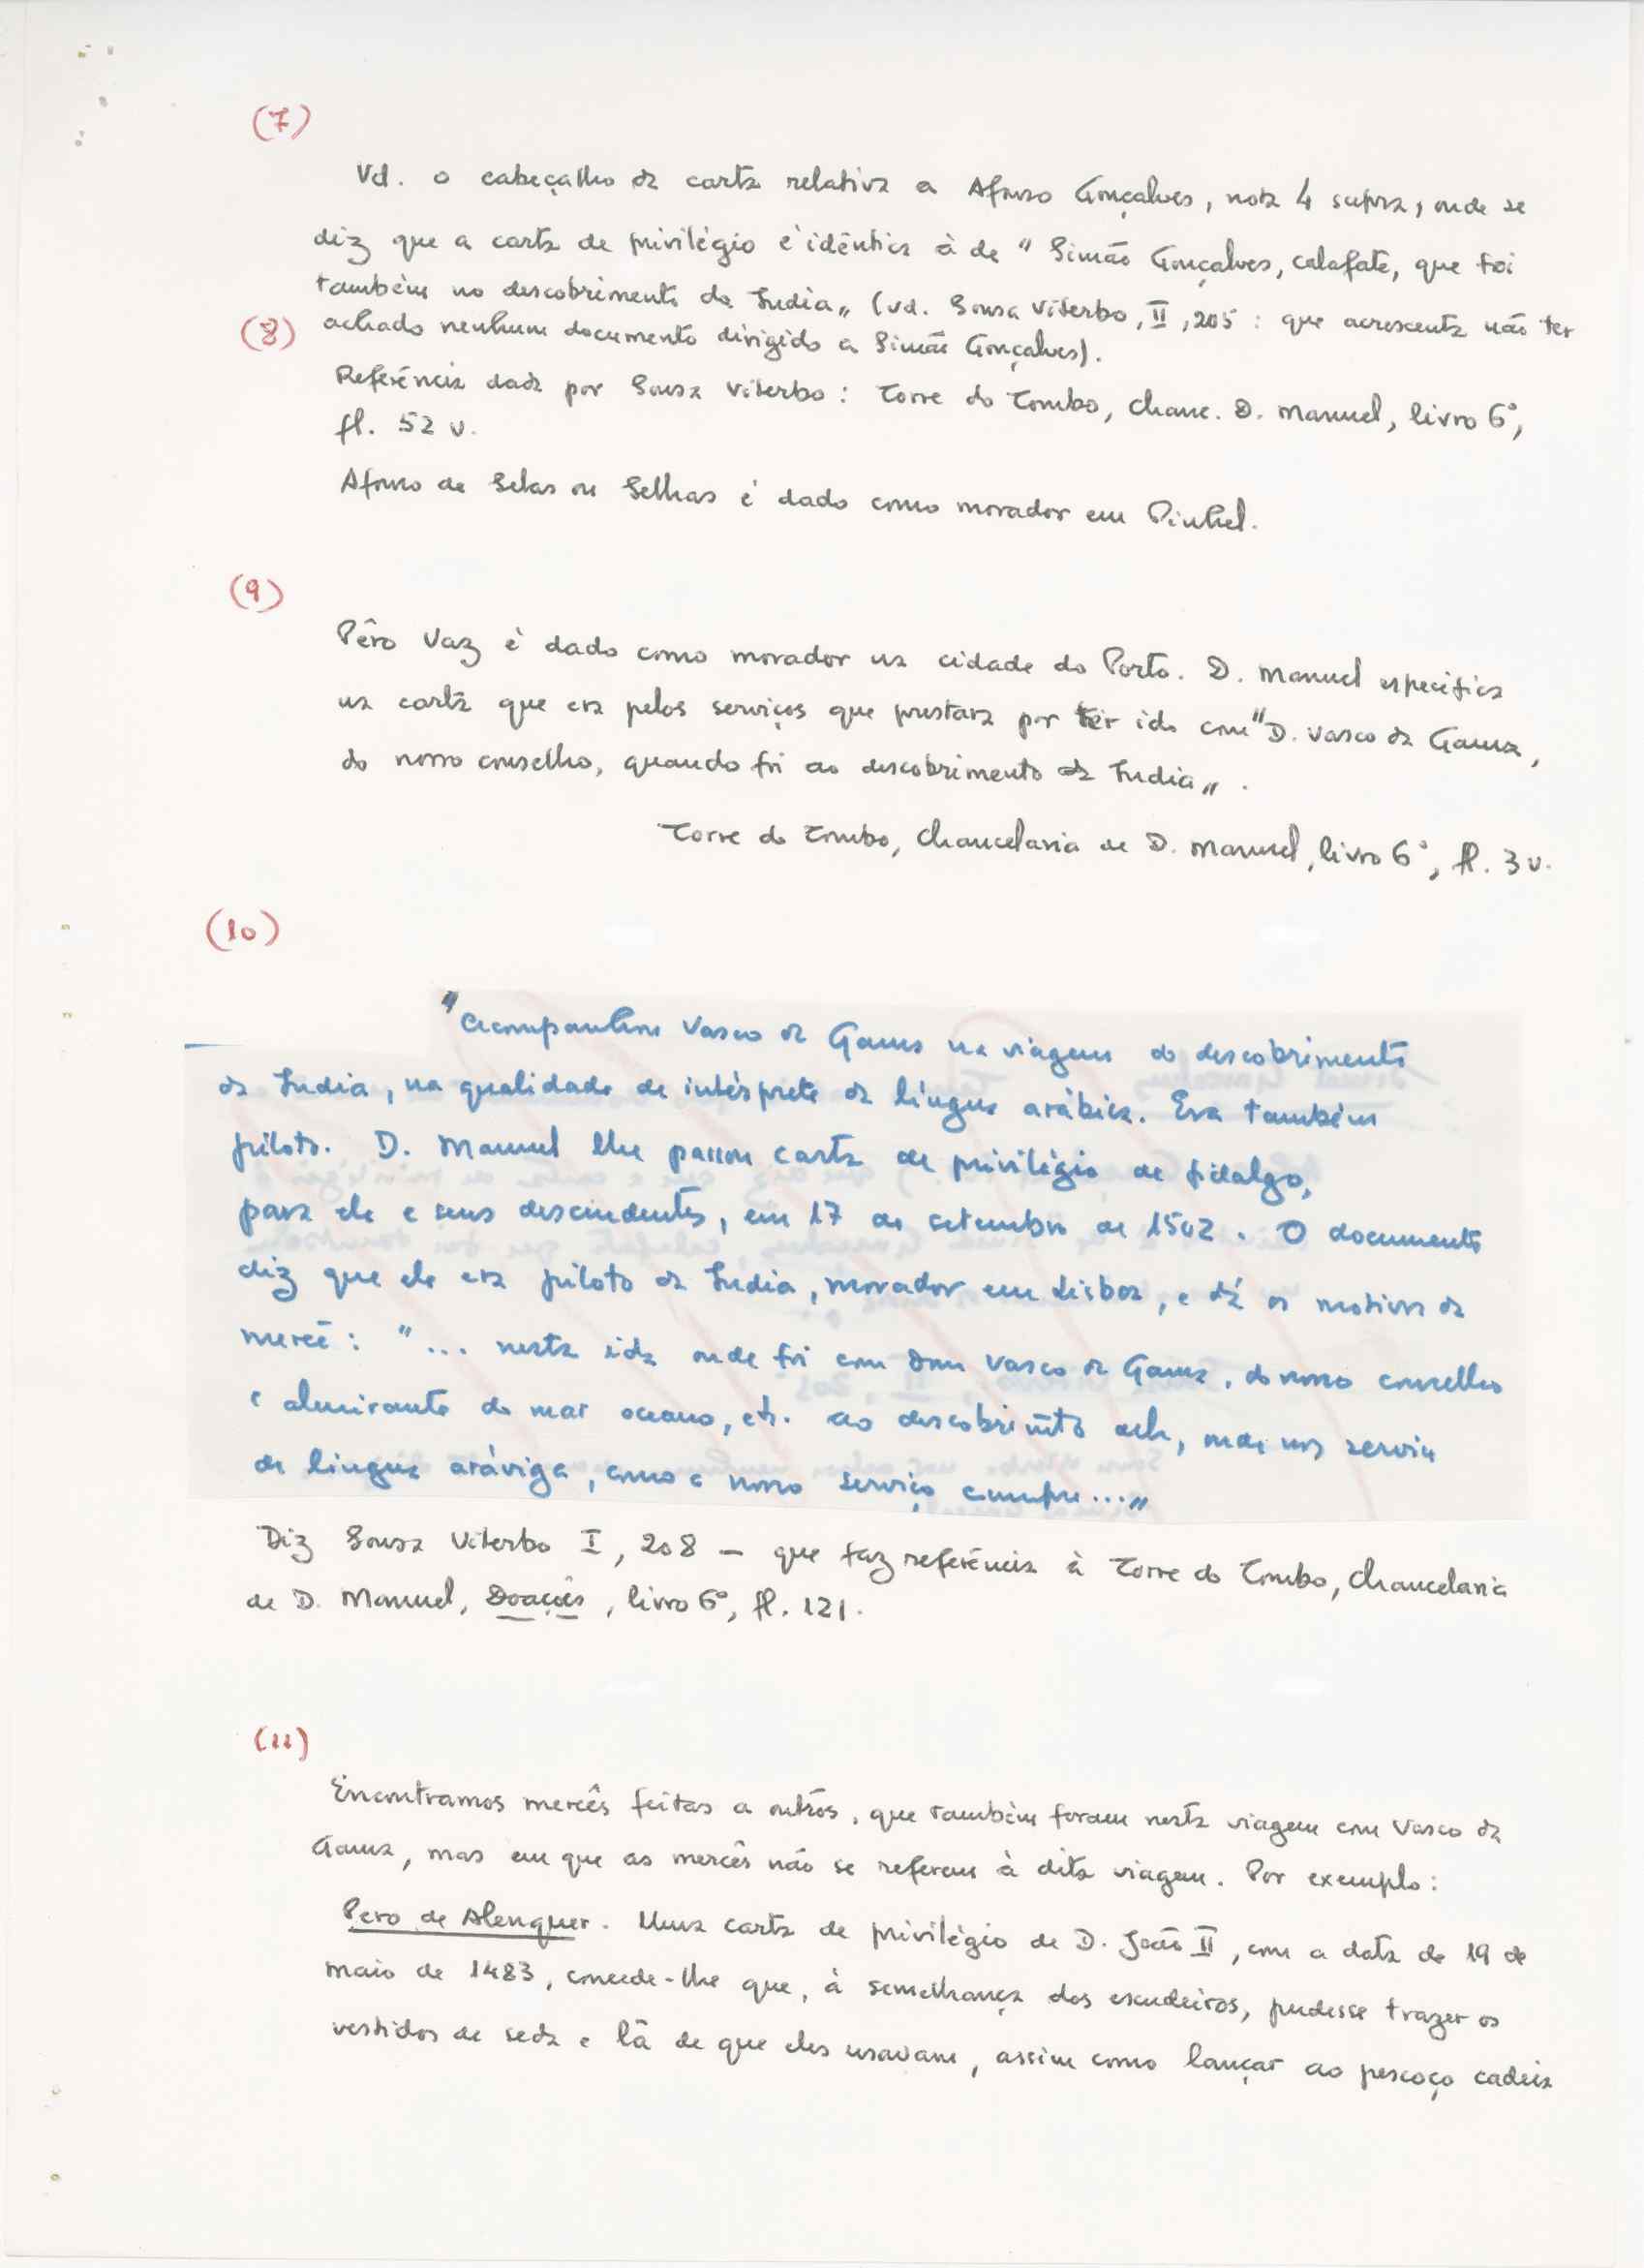 (7)
Vd. o cabeçalho da carta relativa a Afonso Gonçalves, nota 4 supra, onde se
diz que a carta de privilégio é idêntica à de " Simão Gonçalves, calafate, que foi
também no descobrimento da India„ (vd. Sousa Viterbo, II, 205 : que acrescenta não ter
achado nenhum documento dirigido a Simão Gonçalves).
(8)
Referência dada por Sousa Viterbo : Torre do Tombo, Chanc. D. Manuel, livro 6º,
fl. 52 v.
Afonso de Selas ou Selhas é dado como morador em Pinhel.
(9)
Pêro Vaz é dado como morador na cidade do Porto. D. Manuel especifica
na carta que era pelos serviços que prestara por ter ido com "D. Vasco da Gama,
do nosso conselho, quando foi ao descobrimento da India„ .
Torre do Tombo, Chancelaria de D. Manuel, livro 6º, fl. 3 v.
(10)
"Acompanhou Vasco da Gama na viagem do descobrimento
da India, na qualidade de intérprete da língua arábica. Era também
piloto. D. Manuel lhe passou carta de privilégio de fidalgo,
para ele e seus descendentes, em 17 de setembro de 1502 . O documento
diz que ele era piloto da India, morador em Lisboa, e dá os motivos da
mercê : "... nesta ida onde foi com Dom Vasco da Gama, do nosso conselho
e almirante do mar oceano, etc. ao descobrimẽto dela, onde nos serviu
de lingua aráviga, como a nosso serviço cumpre...„
Diz Sousa Viterbo I, 208 – que faz referência à Torre do Tombo, Chancelaria
de D. Manuel, Doações, livro 6º, fl. 121.
(11)
Encontramos mercês feitas a outros, que também foram nesta viagem com Vasco da
Gama, mas em que as mercês não se referem à dita viagem. Por exemplo :
Pero de Alenquer. Uma carta de privilégio de D. João II, com a data de 19 de
maio de 1483, concede-lhe que, à semelhança dos escudeiros, pudesse trazer os
vestidos de seda e lã de que eles usavam, assim como lançar ao pescoço cadeia